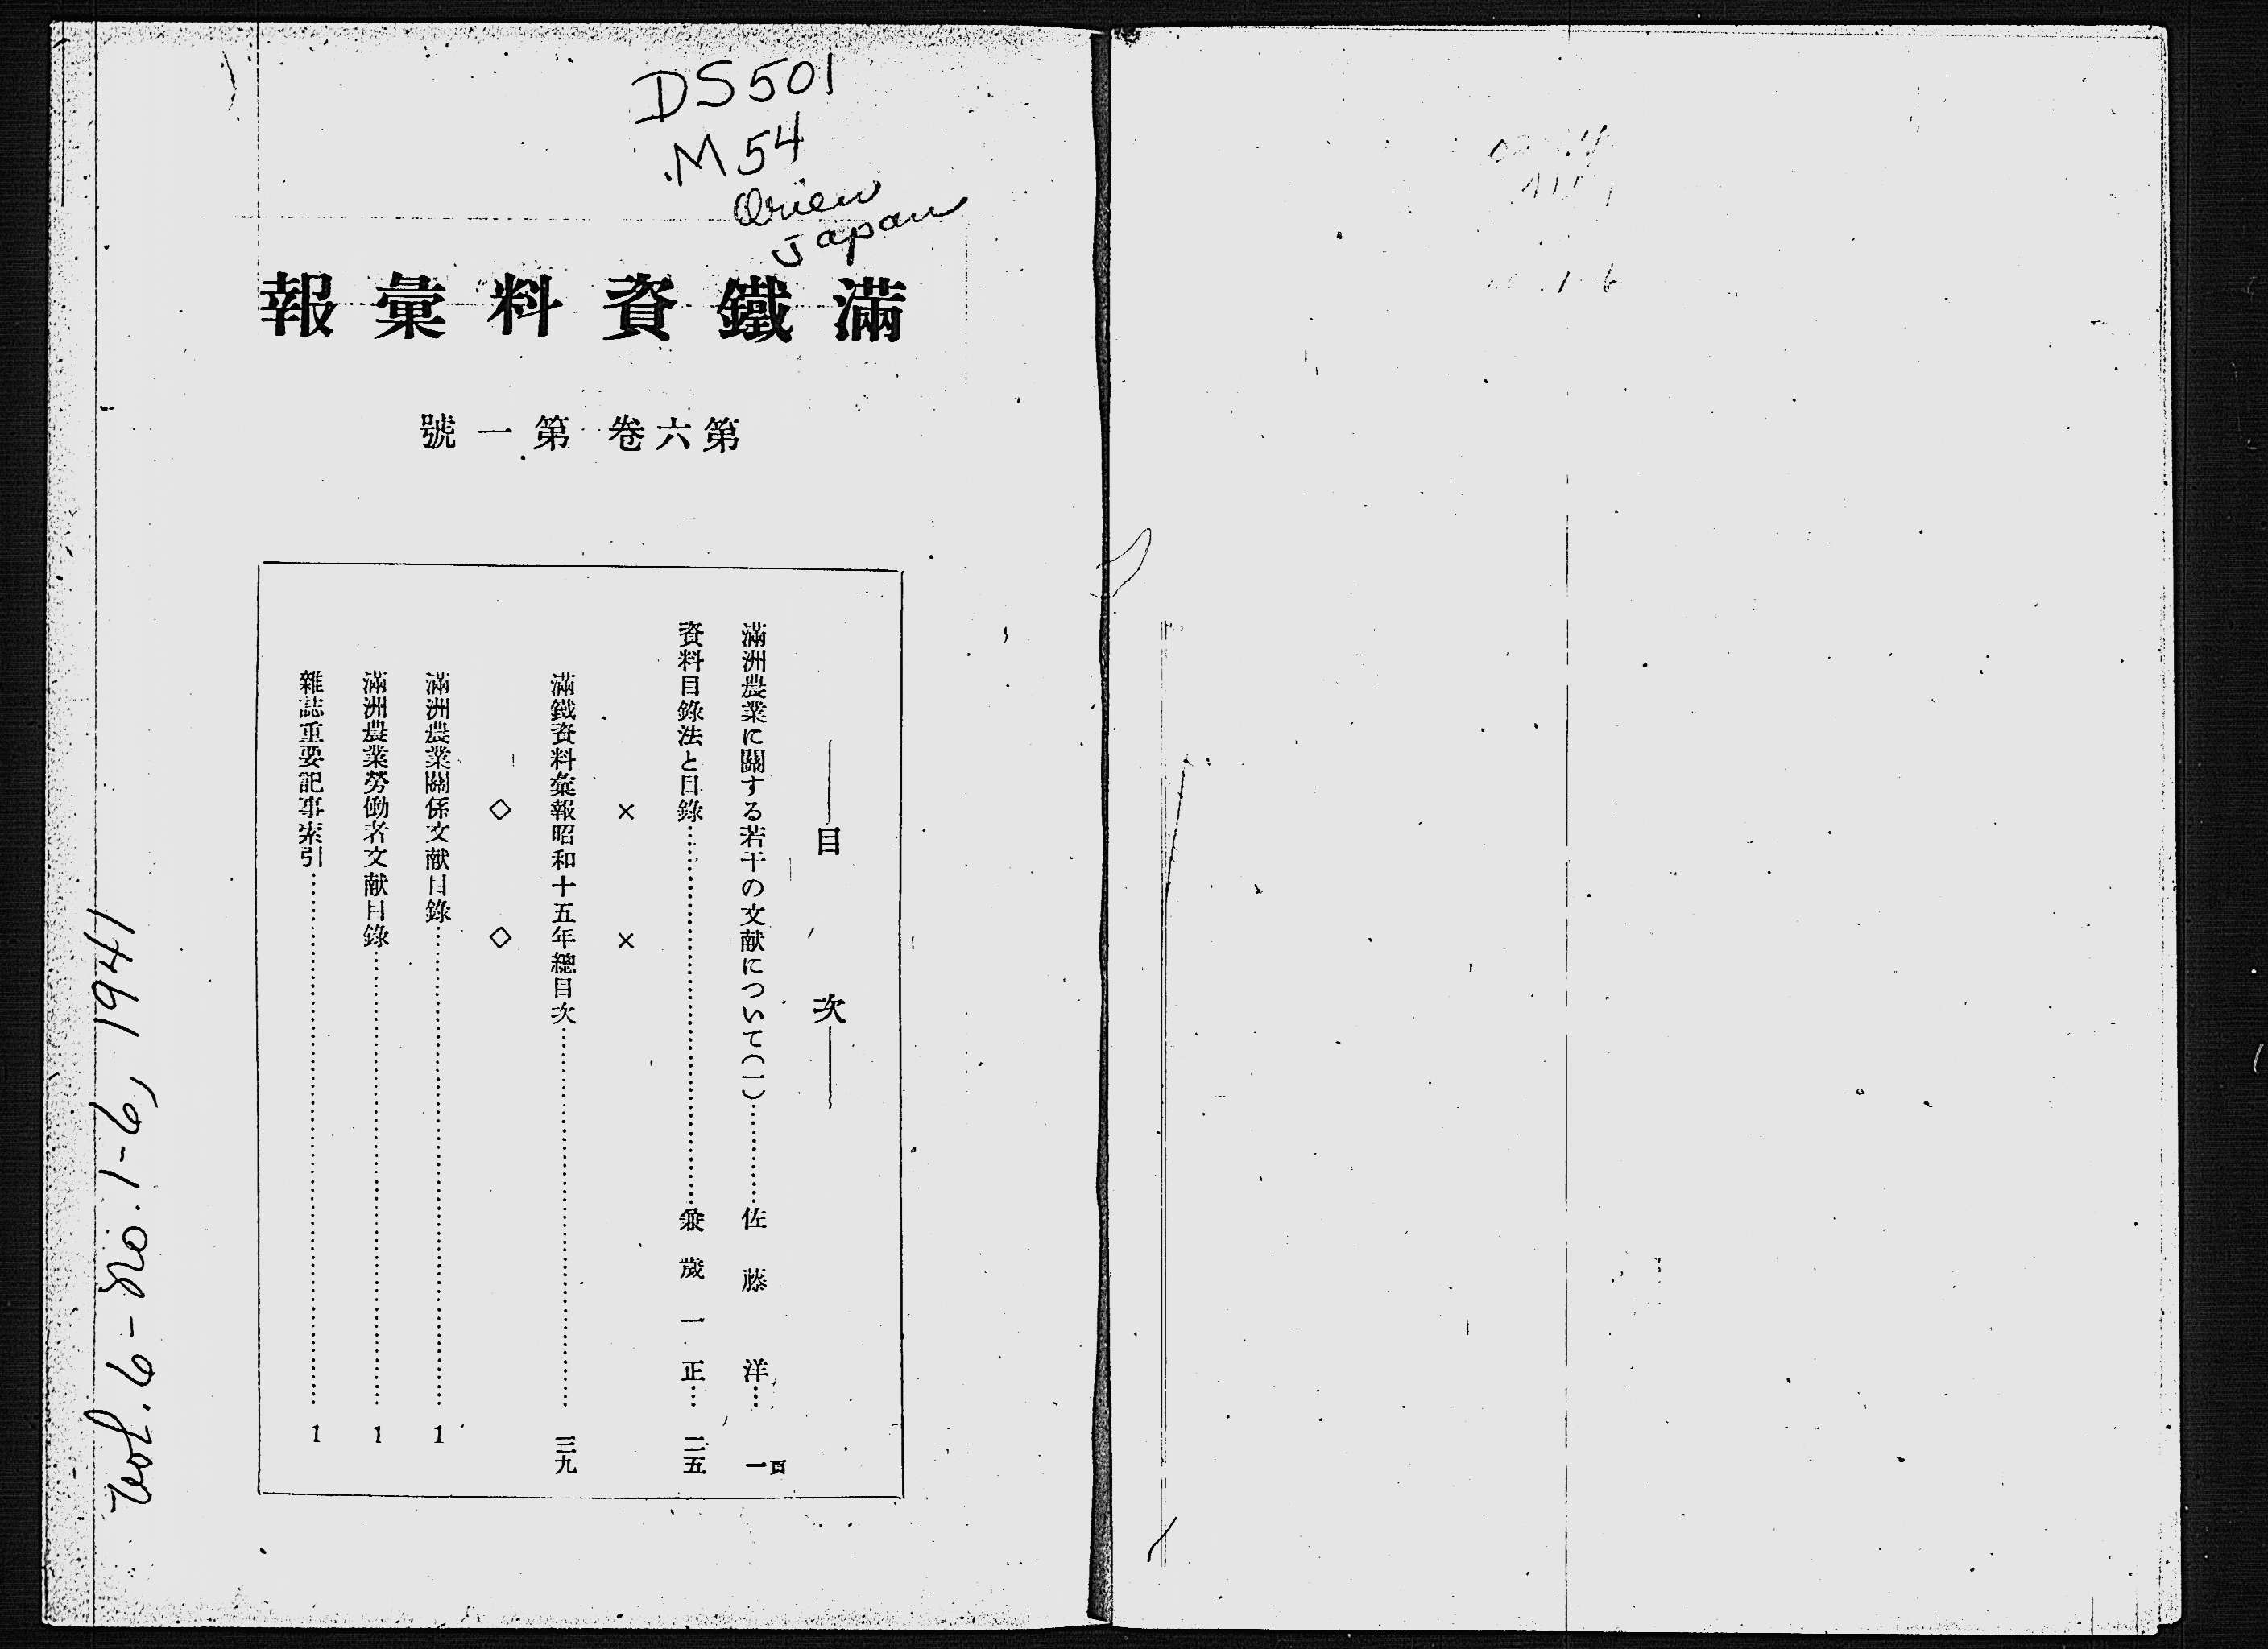 DS501
.M54
Orien
Japan
滿鐵資料彙報
第六卷 第一號
目次
滿洲農業に關する若干の文献について(一)…………佐藤洋…一頁
資料目錄法と目錄…………兼歲一正…二五
× ×
滿鐵資料彙報昭和十五年總目次…………三九
◇ ◇
滿洲農業關係文献目錄…………1
滿洲農業勞働者文献目錄…………1
雜誌重要記事索引…………1
vol. 6 - no. 1-6, 1941